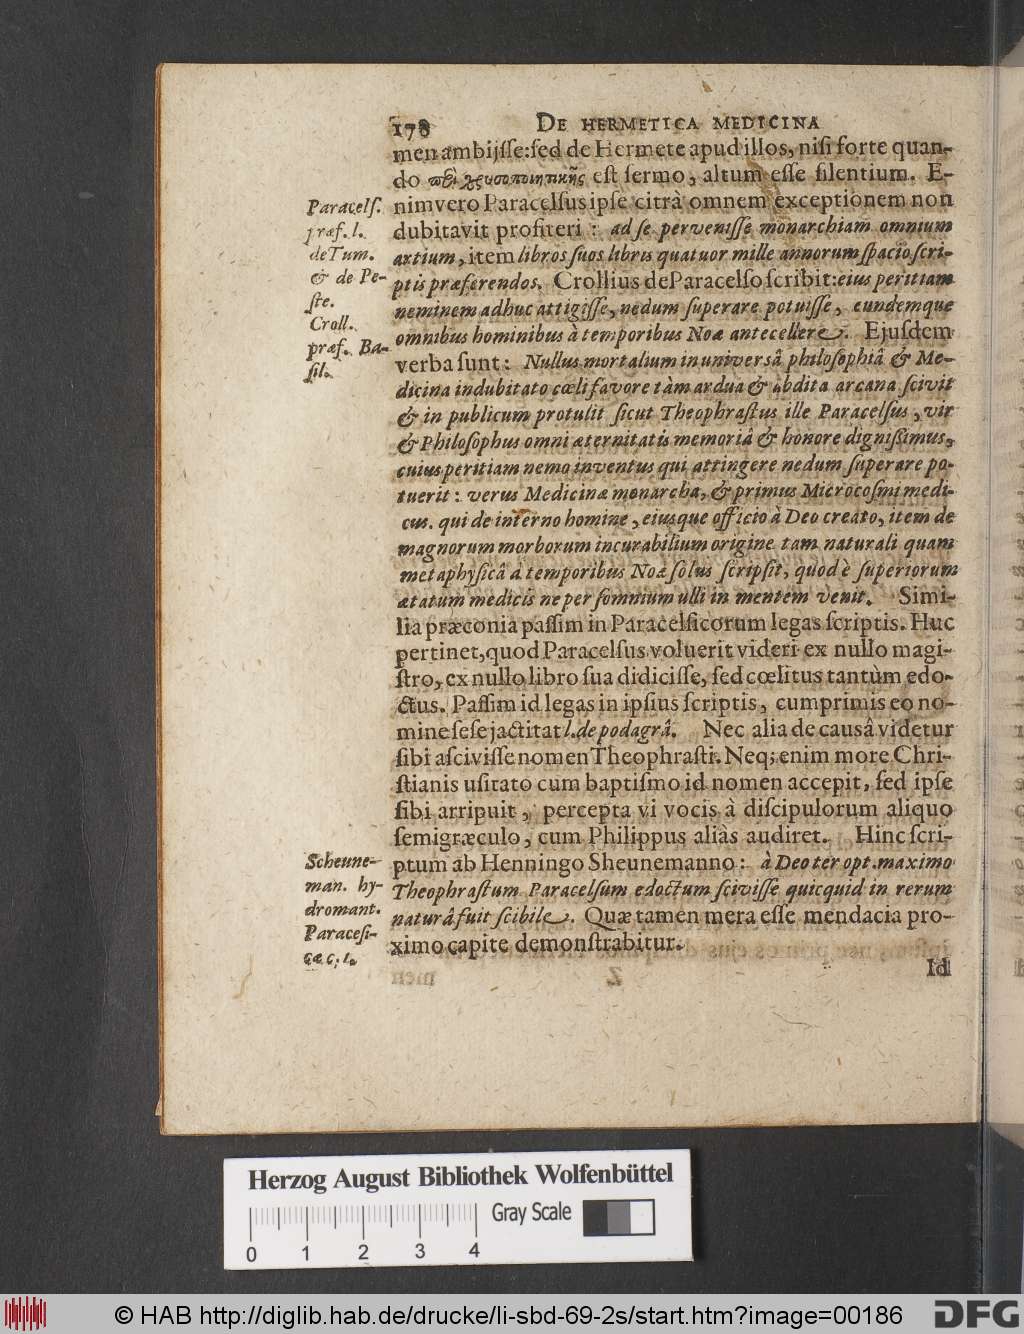 178 DE HERMETICA MEDICINA
men ambijſſe: ſed de Hermete apud illos, niſi forte quan-
do περὶ χρυσοποιητικῆς eſt ſermo, altum eſſe ſilentium. E-
nimvero Paracelſus ipſe citrà omnem exceptionem non
dubitavit profiteri : ad ſe perveniſſe monarchiam omnium
artium, item libros ſuos libris quatuor mille annorum ſpacio ſcri-
ptis præferendos. Crollius de Paracelſo ſcribit: eius peritiam
neminem adhuc attigiſſe, nedum ſuperare potuiſſe, eundemque
omnibus hominibus à temporibus Noæ antecellere. Ejuſdem
verba ſunt: Nullus mortalium in universâ philoſophiâ & Me-
dicina indubitato cœli favore tàm ardua & abdita arcana ſcivit
& in publicum protulit ſicut Theophraſtus ille Paracelſus, vir
& Philoſophus omni æternitatis memoriâ & honore digniſſimus,
cuius peritiam nemo inventus qui attingere nedum ſuperare po-
tuerit : verus Medicinæ monarcha, & primus Microcoſmi medi-
cus. qui de interno homine, eiusque officio à Deo creato, item de
magnorum morborum incurabilium origine tam naturali quam
metaphyſicâ à temporibus Noæ ſolus ſcripſit, quod è ſuperiorum
ætatum medicis ne per ſomnium ulli in mentem venit. Simi-
lia præconia paſſim in Paracelſicorum legas ſcriptis. Huc
pertinet, quod Paracelſus voluerit videri ex nullo magi-
ſtro, ex nullo libro ſua didiciſſe, ſed cœlitus tantùm edo-
ctus. Paſſim id legas in ipſius ſcriptis, cumprimis eo no-
mine ſeſe jactitat l. de podagrâ. Nec alia de causâ videtur
ſibi aſciviſſe nomen Theophraſti. Neq; enim more Chri-
ſtianis uſitato cum baptiſmo id nomen accepit, ſed ipſe
ſibi arripuit, percepta vi vocis à diſcipulorum aliquo
ſemigræculo, cum Philippus aliàs audiret. Hinc ſcri-
ptum ab Henningo Sheunemanno: à Deo ter opt. maximo
Theophraſtum Paracelſum edoctum ſciviſſe quicquid in rerum
naturâ fuit ſcibile. Quæ tamen mera eſſe mendacia pro-
ximo capite demonſtrabitur.
Id
Paracelſ.
præf. l.
de Tum.
& de Pe-
ſte.
Croll.
præf. Ba-
ſil.
Scheune-
man. hy-
dromant.
Paraceſi-
cæ c. 1.
Herzog August Bibliothek Wolfenbüttel
Gray Scale
0 1 2 3 4
© HAB http://diglib.hab.de/drucke/li-sbd-69-2s/start.htm?image=00186
DFG